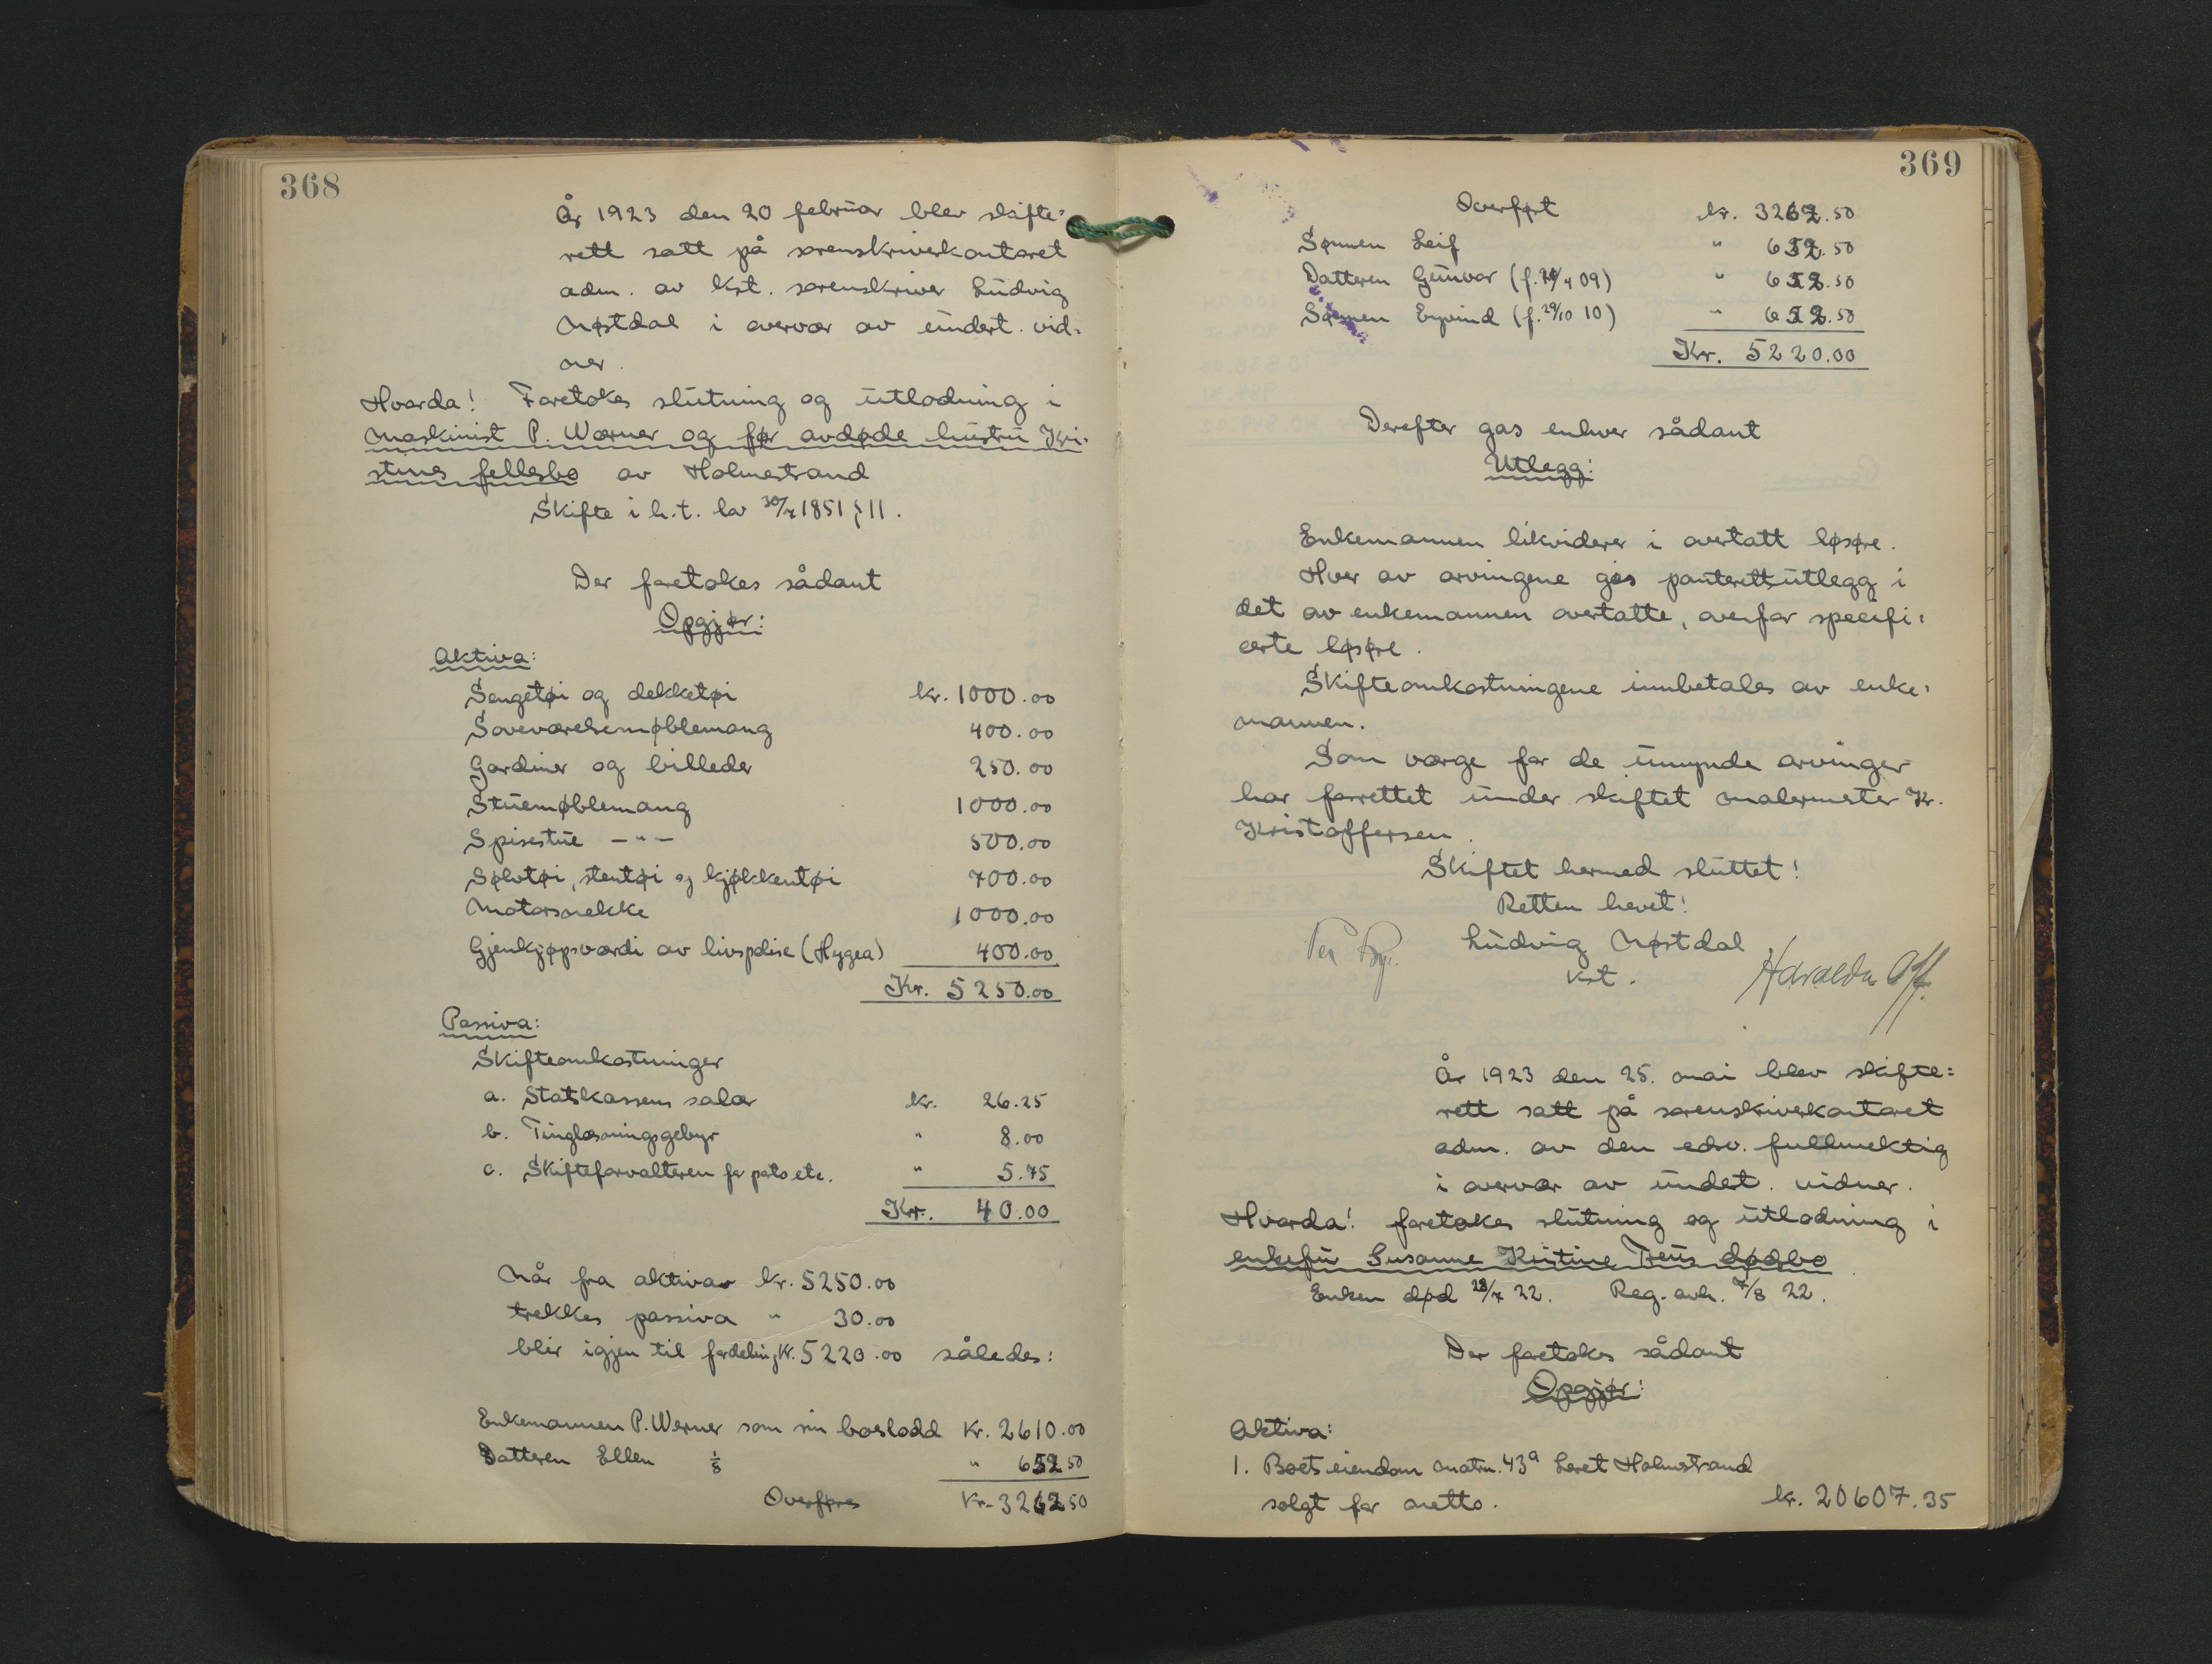 368
År 1923 den 20 februar blev skifte=
rett satt på sorenskriverkontoret
adm. av kst. sorenskriver Ludvig
Møstdal i overvær av undert. vid=
ner.
Hvorda! Foretokes slutning og utlodning i
Maskinist P. Wærner og før avdøde hustru Kri=
stines fellesbo av Holmestrand
Skifte i h.t. lov 30/7 1851 § 11.
Der foretokes sådant
Opgjør:
Aktiva:
Sengetøi og dekketøi kr. 1000.00
Soveværelsemøblemang 400.00
Gardiner og billeder 250.00
Stuemøblemang 1000.00
Spisestue —"— 500.00
Sølvtøi, stentøi og kjøkkentøi 700.00
Motorsnekke 1000.00
Gjenkjøpsværdi av livspolise (Hygea) 400.00
Kr. 5250.00
Passiva:
Skifteomkostninger
a. Statskassens salær kr. 26.25
b. Tinglæsningsgebyr " 8.00
c. Skifteforvalteren for porto etc. " 5.75
Kr. 40.00
Når fra aktiva kr. 5250.00
trekkes passiva " 30.00
blir igjen til fordeling Kr. 5220.00 således:
Enkemannen P. Werner som sin boslodd Kr. 2610.00
Datteren Ellen 1/8 " 652 50
Overføres Kr. 3262 50
369
Overført kr. 3262.50
Sønnen Leif " 652.50
Datteren Gunvor (f. /4 09) " 652.50
Sønnen Eyvind (f. 29/10 10) " 652.50
Kr. 5220.00
Derefter gas enhver sådant
Utlegg:
Enkemannen likviderer i overtatt løsøre.
Hver av arvingene gies panterettsutlegg i
det av enkemannen overtatte, ovenfor specifi=
certe løsøre.
Skifteomkostningene innbetales av enke=
mannen.
Som værge for de umynde arvinger
har forrettet under skiftet malermester Kr.
Kristoffersen.
Skiftet hermed sluttet!
Retten hevet!
Ludvig Møstdal
kst.
År 1923 den 25. mai blev skifte=
rett satt på sorenskriverkontoret
adm. av den edsv. fullmektig
i overvær av undert. vidner.
Hvorda! foretokes slutning og utlodning i
enkefru Susanne Kristine dødsbo
Enken død 28/7 22. Reg. avh. 7/8 22.
Der foretokes sådant
Opgjør:
Aktiva:
1. Boets eiendom matrn. 43a Holmestrand
solgt for netto. kr. 20607.35